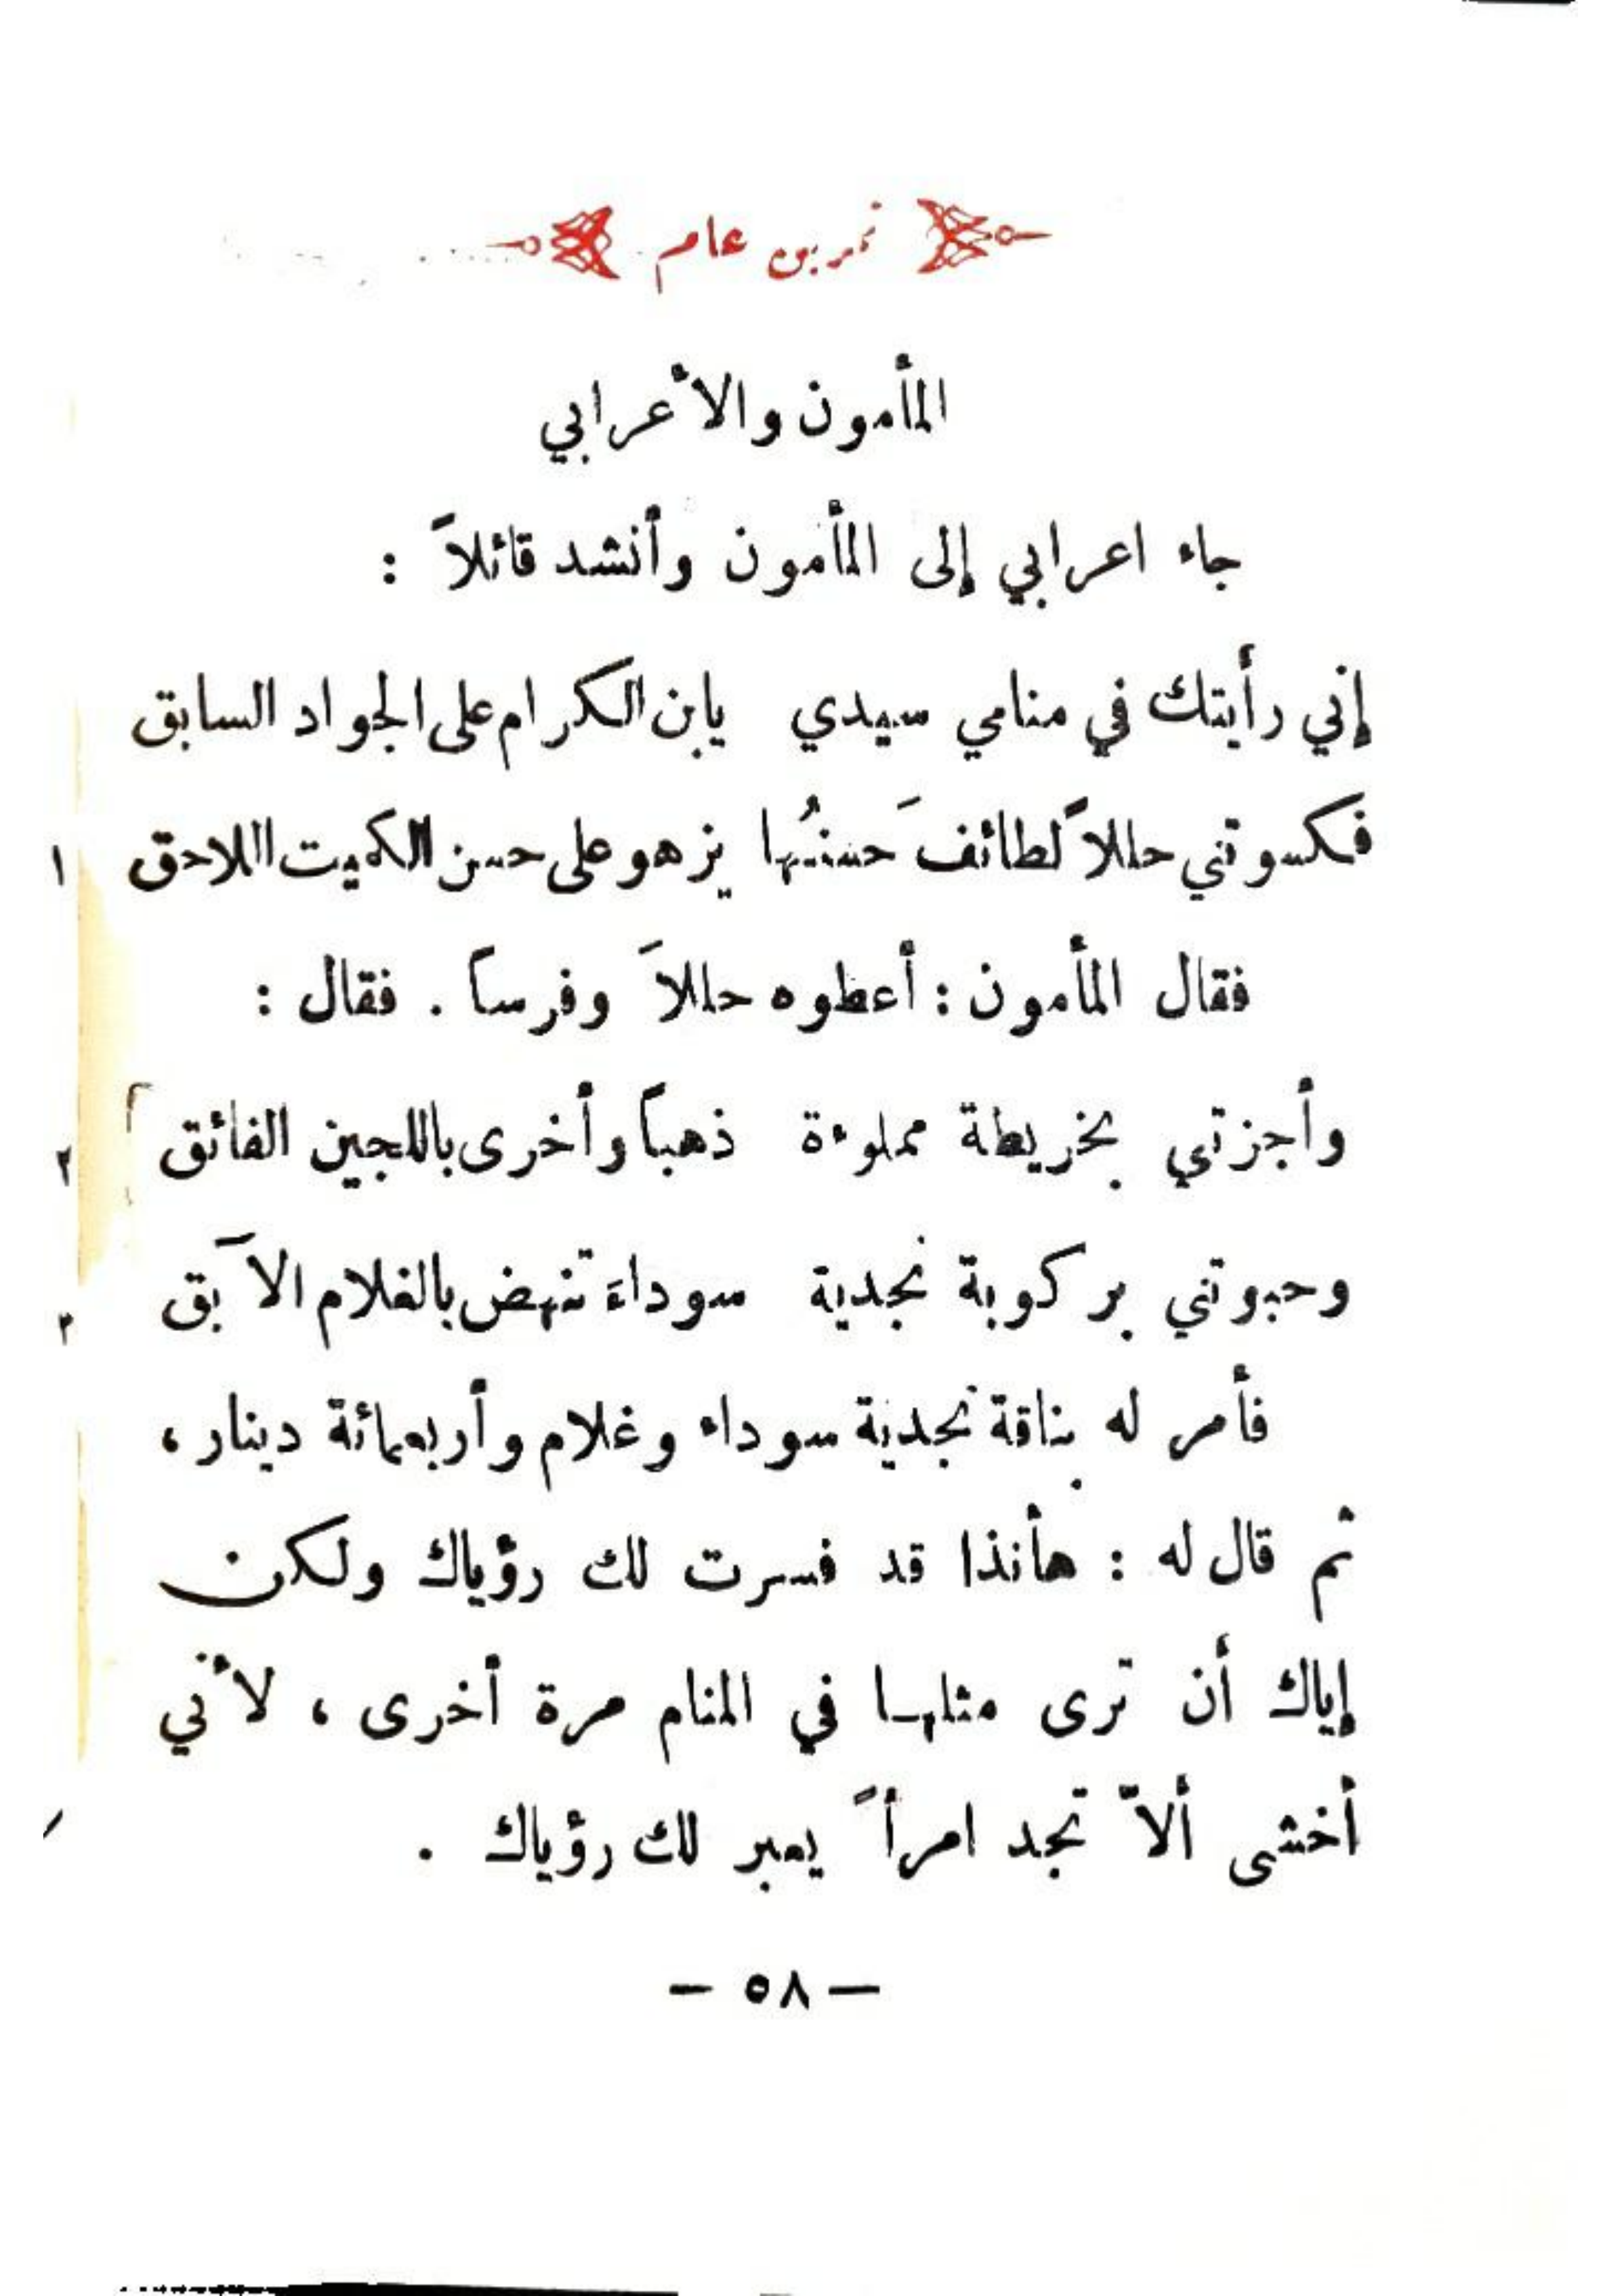 تمرين عام
المأمون والأعرابي
جاء اعرابي إلى المأمون وأنشد قائلاً :
إني رأيتك في منامي سيدي يابن الكرام على الجواد السابق
فكسوتني حللاً لطائفَ حسنُها يزهو على حسن الكميت اللاحق ١
فقال المأمون : أعطوه حللاً وفرساً . فقال :
وأجزتي بخريطة مملوءة ذهباً وأخرى باللجين الفائق ٢
وحبوتني بركوبة نجدية سوداءَ تنهض بالغلام الآبق ٣
فأمر له بناقة نجدية سوداء وغلام وأربعمائة دينار ،
ثم قال له : هأنذا قد فسرت لك رؤياك ولكن
إياك أن ترى مثلها في المنام مرة أخرى ، لأني
أخشى ألاّ تجد امرأً يعبر لك رؤياك .
— ٥٨ —